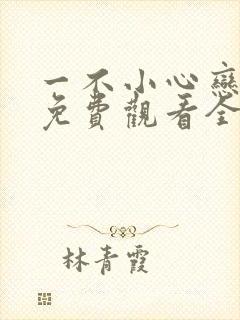 一不小心戀
免費觀看全
林青霞